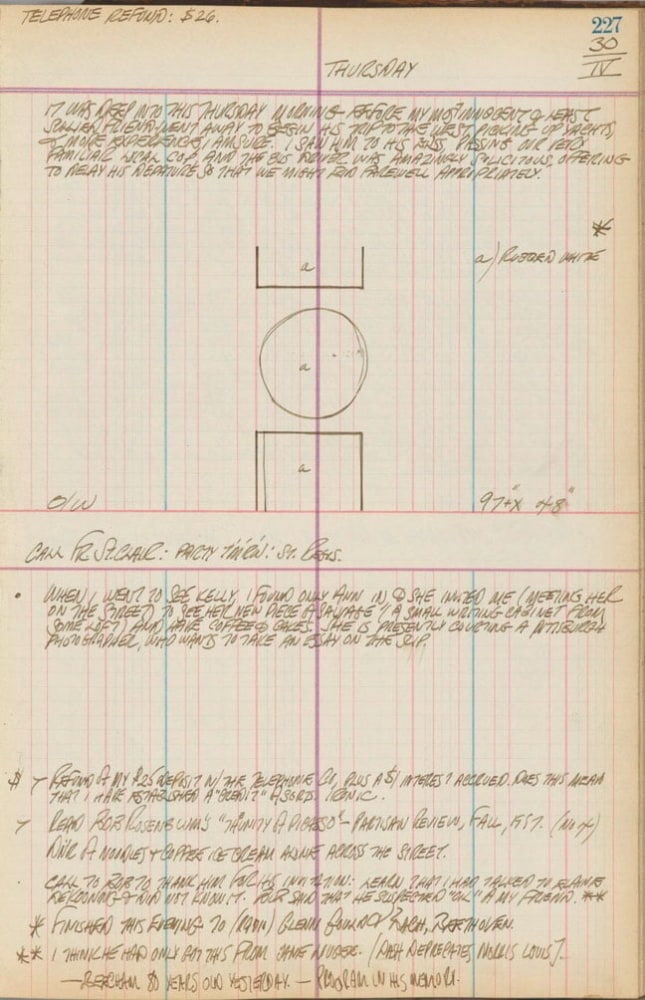 TELEPHONE REFUND: $26.
227
30
IV
THURSDAY
IT WAS DEEP INTO THIS THURSDAY MORNING BEFORE MY MOST INNOCENT & LEAST
SULLIED FRIEND WENT AWAY TO BEGIN HIS TRIP TO THE WEST, PICKING UP YACHTS,
& MORE EXPERIENCE, I AM SURE. I SAW HIM TO HIS BUS, PASSING OUR VERY
FAMILIAR LOCAL COP, AND THE BUS DRIVER WAS AMAZINGLY SOLICITOUS, OFFERING
TO DELAY HIS DEPARTURE SO THAT WE MIGHT BID FAREWELL APPROPRIATELY.
*
a) RUBBED WHITE
a
a
a
O/W
97" X 48"
CALL FR. ST. CLAIR: PARTY TOM'W: ST. REGIS.
• WHEN I WENT TO SEE KELLY, I FOUND ONLY ANN IN & SHE INVITED ME (MEETING HER
ON THE STREET) TO SEE HER NEW PIECE OF SALVAGE (A SMALL WRITING CABINET FROM
SOME LOFT) AND HAVE COFFEE & CAKES. SHE IS PRESENTLY COURTING A PITTSBURGH
PHOTOGRAPHER, WHO WANTS TO TAKE AN ESSAY ON THE SLIP.
$ REFUND OF MY $25 DEPOSIT W/ THE TELEPHONE CO, PLUS A $1 INTEREST ACCRUED. DOES THIS MEAN
THAT I HAVE ESTABLISHED A "CREDIT" OF SORTS. IRONIC.
READ BOB ROSENBLUM'S "UNITY OF PICASSO" - PARTISAN REVIEW, FALL, 1957. (NO 4)
DIN'R OF NOODLES + COFFEE ICE CREAM ALONE ACROSS THE STREET.
CALL TO BOB TO THANK HIM FOR HIS INVITATION: LEARN THAT I HAD TALKED TO ELAINE
& DID NOT KNOW IT. BOB SAID THAT HE SUSPECTED "OK" OF MY FRIEND. **
* FINISHED THIS EVENING TO (RADIO) GLENN GOULD / BACH, BEETHOVEN.
** I THINK HE HAD ONLY GOT THIS FROM JANE [DEPRECATES MORRIS LOUIS].
— BEECHAM 80 YEARS OLD YESTERDAY. — PROGRAM IN HIS MEMORY.